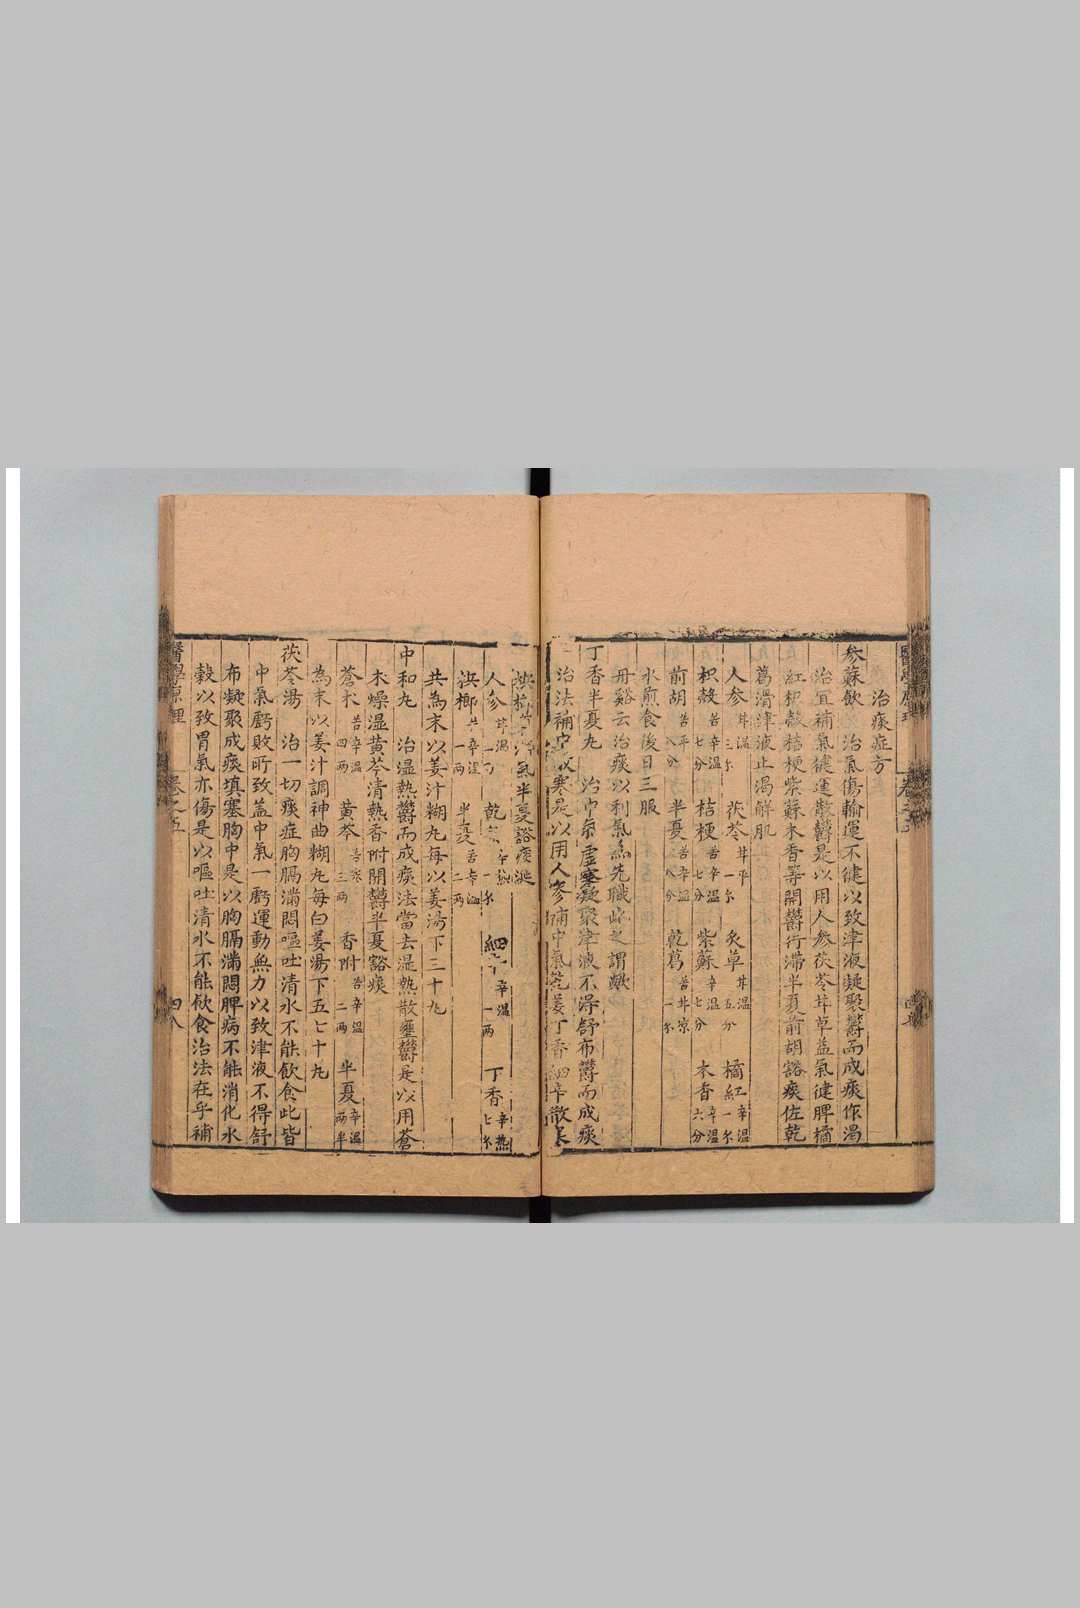 治痰症方
參蘇飲 治氣傷輸運不健以致津液凝聚鬱而成痰作渴
治宜補氣健運散鬱是以用人參茯苓甘草益氣健脾橘
紅枳殼桔梗紫蘇木香等開鬱行滯半夏前胡豁痰佐乾
葛滑津液止渴解肌
人參甘溫三錢 茯苓甘平一錢 炙草甘溫五分 橘紅辛溫一錢
枳殼苦辛溫七分 桔梗苦辛溫七分 紫蘇辛溫七分 木香辛溫六分
前胡苦平八分 半夏苦辛溫八分 乾葛苦甘凉一錢
水煎食後日三服
丹谿云治痰以利氣為先職此之謂歟
丁香半夏丸 治中氣虛寒凝聚津液不得舒布鬱而成痰
治法補中散寒是以用人參補中氣乾姜丁香細辛散寒
檳榔 氣半夏豁痰涎
人參 乾 細辛辛溫一兩 丁香辛熱七錢
檳榔 一兩 半夏苦辛溫二兩
共為末以姜汁糊丸每以姜湯下三十丸
中和丸 治湿熱鬱而成痰法當去湿熱散壅鬱是以用蒼
木燥湿黄芩清熱香附開鬱半夏豁痰
蒼朮苦辛溫四兩 黄芩苦凉三兩 香附苦辛溫二兩 半夏辛溫兩半
為末以姜汁調神曲糊丸每白姜湯下五七十丸
茯苓湯 治一切痰症胸膈滿悶嘔吐清水不能飲食此皆
中氣虧敗所致盖中氣一虧運動無力以致津液不得舒
布凝聚成痰填塞胸中是以胸膈滿悶脾病不能消化水
穀以致胃氣亦傷是以嘔吐清水不能飲食治法在乎補
醫學原理 卷之五 四八